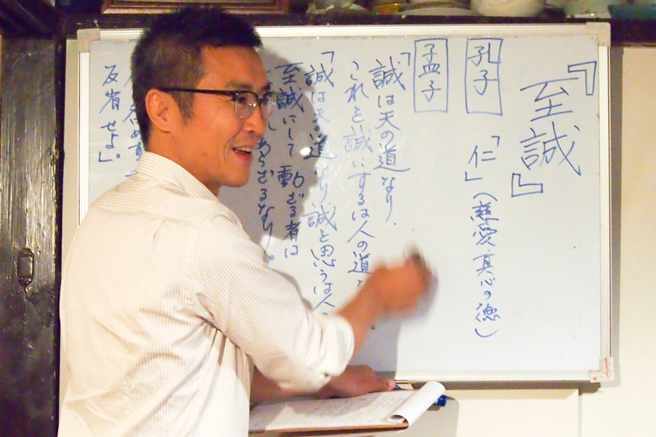 『至誠』
孔子
「仁」(慈愛・真心の徳)
孟子
「誠は天の道なり、
これを誠にするは人の道
「誠は天の道なり、誠と思うは人
至誠にして動かざる者は
あらざるなり。
反省せよ」